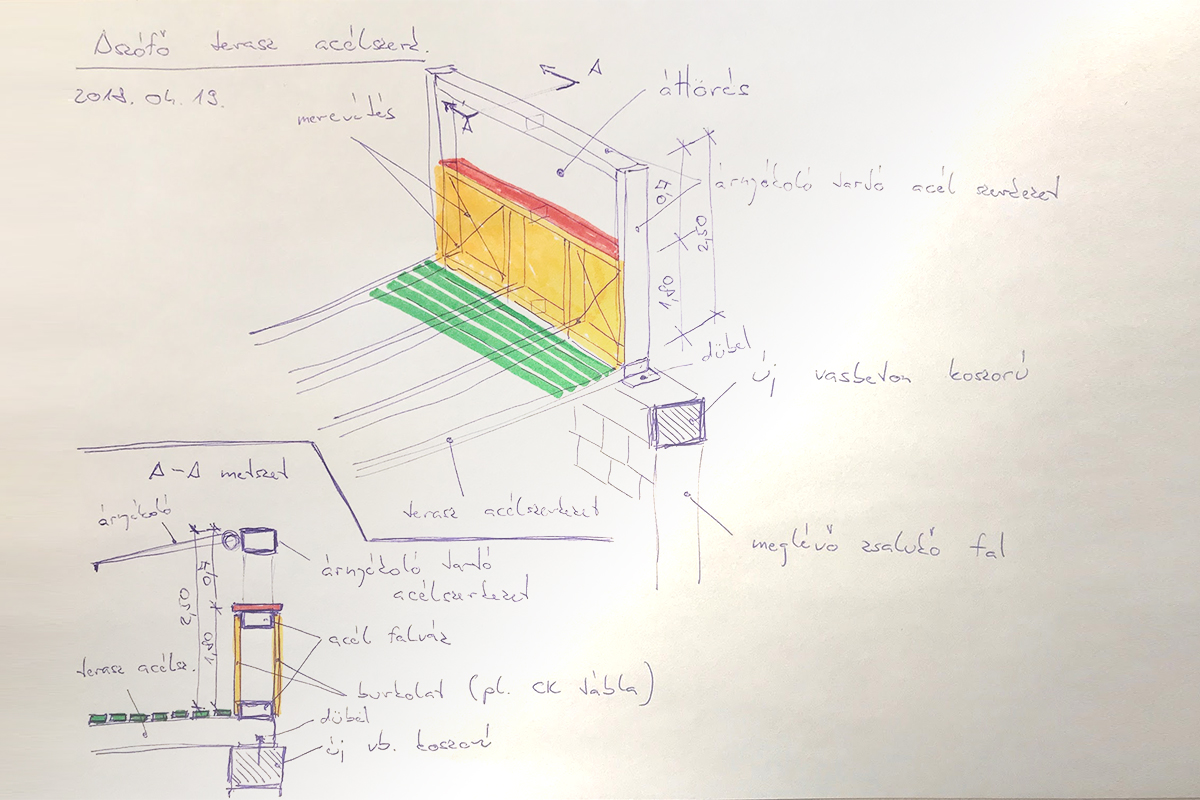 Aszófő terasz acélszerk.
2018. 04. 19.
merevítés
A
A
áttörés
árnyékoló tartó acél szerkezet
0,7
2,50
1,80
dübel
új vasbeton koszorú
terasz acélszerkezet
meglévő zsalukő fal
A-A metszet
árnyékoló
árnyékoló tartó
acélszerkezet
0,7
2,50
1,80
acél falváz
terasz acélsz.
burkolat (pl. CK tábla)
dübel
új vb. koszorú